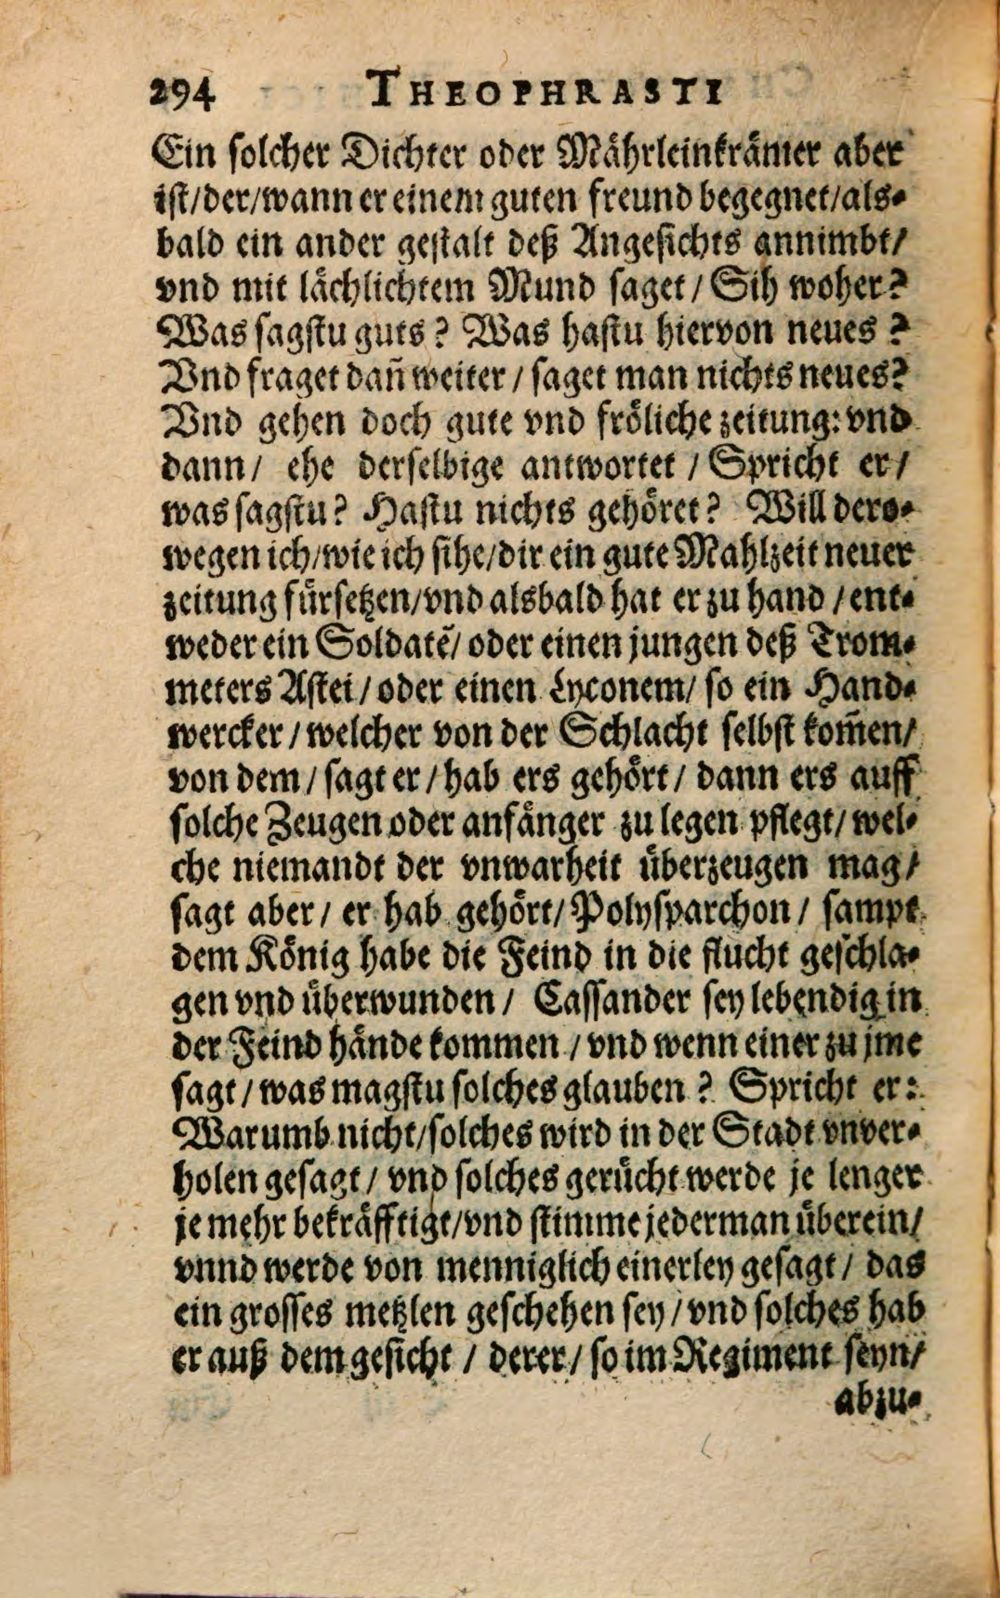 294 THEOPHRASTI
Ein solcher Dichter oder Mährleinkrämer aber
ist/der/wann er einem guten freund begegnet/als-
bald ein ander gestalt deß Angesichts annimbt/
vnd mit lächlichtem Mund saget / Sih woher?
Was sagstu guts? Was hastu hiervon neues?
Vnd fraget dañ weiter / saget man nichts neues?
Vnd gehen doch gute vnd fröliche zeitung: vnd
dann/ ehe derselbige antwortet / Spricht er/
was sagstu? Hastu nichts gehöret? Will dero-
wegen ich/wie ich sihe/dir ein gute Mahlzeit neuer
zeitung fürsetzen/vnd alsbald hat er zu hand / ent-
weder ein Soldatẽ/ oder einen jungen deß Trom-
meters Astei / oder einen Lyconem/ so ein Hand-
wercker / welcher von der Schlacht selbst kom̃en/
von dem / sagt er / hab ers gehört / dann ers auff
solche Zeugen oder anfänger zu legen pflegt/ wel-
che niemandt der vnwarheit überzeugen mag/
sagt aber / er hab gehört/ Polysparchon / sampt
dem König habe die Feind in die flucht geschla-
gen vnd überwunden / Cassander sey lebendig in
der Feind hände kommen / vnd wenn einer zu jme
sagt / was magstu solches glauben? Spricht er:
Warumb nicht/solches wird in der Stadt vnver-
holen gesagt / vnd solches gerücht werde je lenger
je mehr bekräfftigt/vnd stimme jederman überein/
vnnd werde von menniglich einerley gesagt / das
ein grosses metzlen geschehen sey / vnd solches hab
er auß dem gesicht / derer / so im Regiment seyn/
abzu-